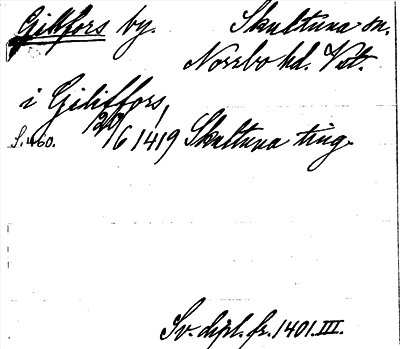 Gilkfors by. Skultuna sn.
Norrbo hd. Vstm.
i Giliffors,
S. 460. 20/6 1419 Skultuna ting.
Sv. dipl. fr. 1401. III.